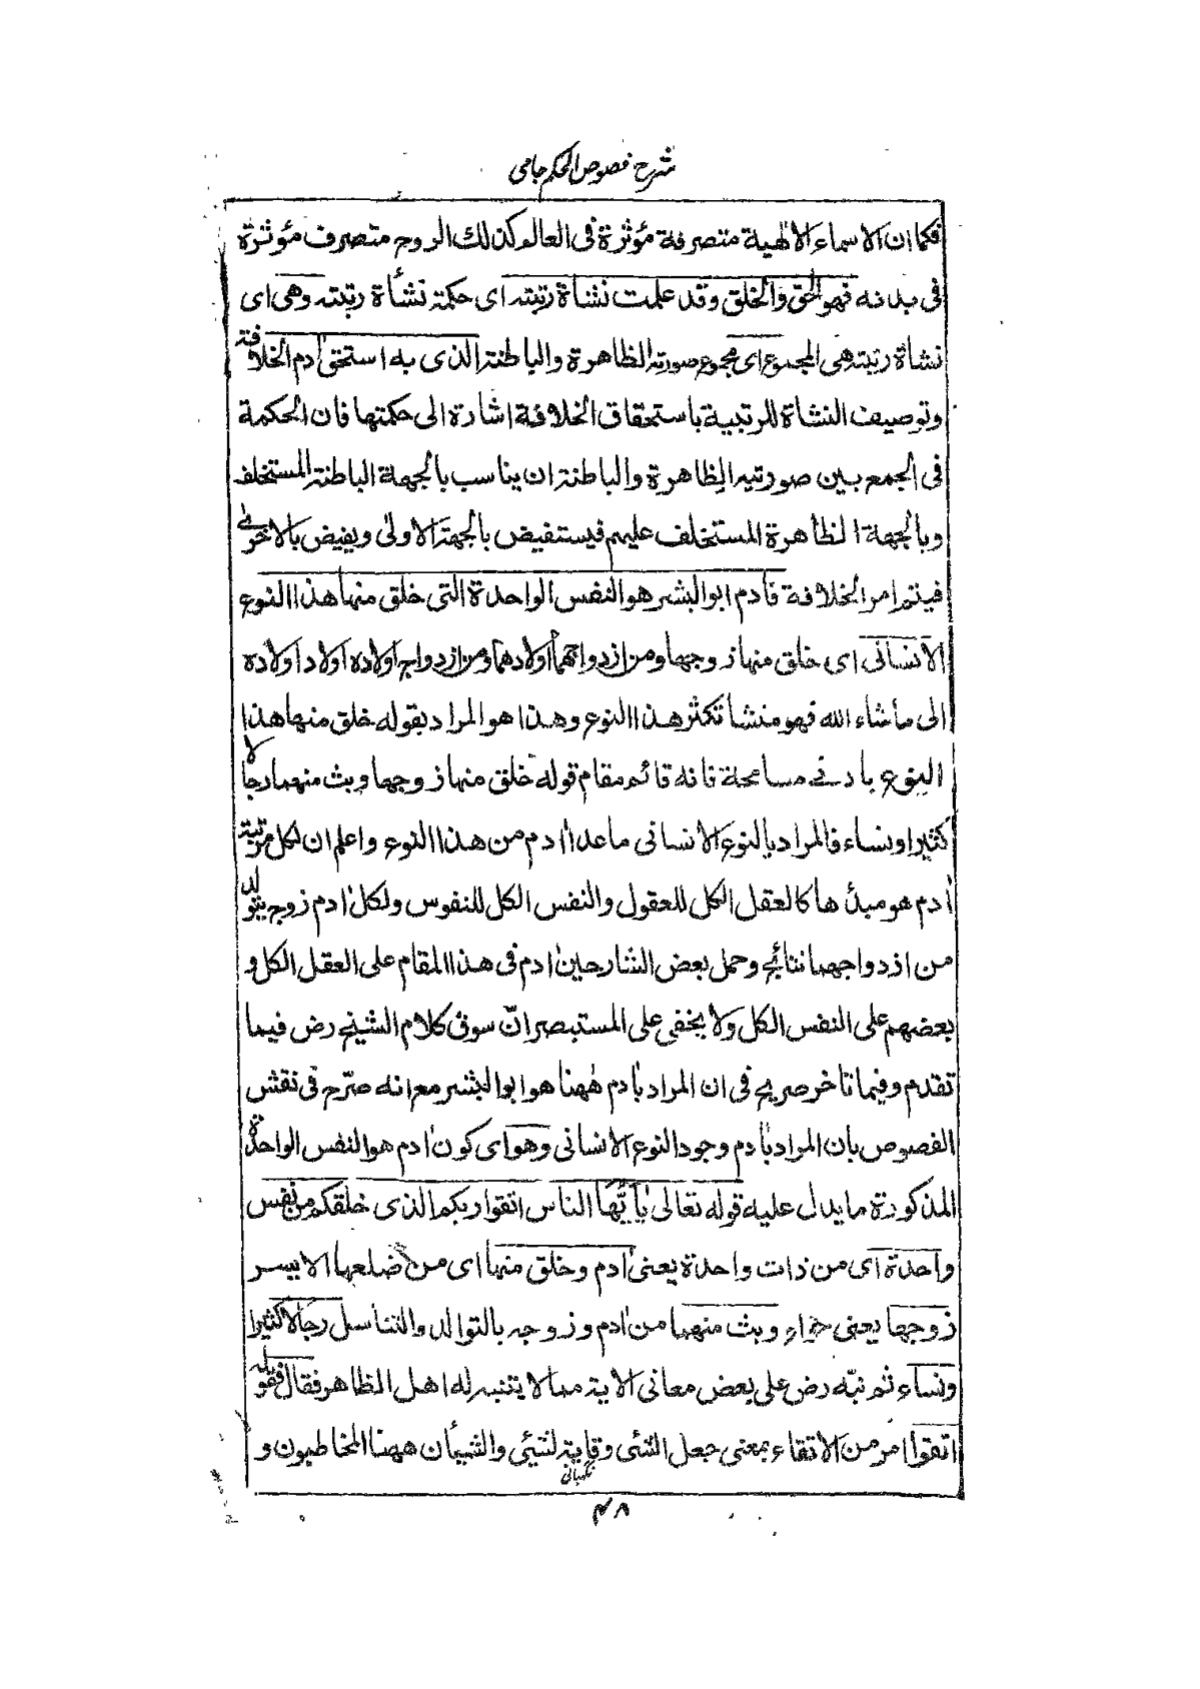 شرح فصوص الحكم جامی
فكما ان الاسماء الالهية متصرفة مؤثرة فی العالم كذلك الروح متصرف مؤثرة
فی بدنه فهو الحق والخلق وقد علمت نشاة رتبته ای حكمة نشأة رتبته وهی ای
نشاة رتبته هی المجموع ای مجموع صورته الظاهرة والباطنة الذی به استحق ادم الخلافة
وتوصيف النشاة الرتبية باستحقاق الخلافة اشارة الی حكمتها فان الحكمة
فی الجمع بين صورتيه الظاهرة والباطنة ان يناسب بالجهة الباطنة المستخلف
وبالجهة الظاهرة المستخلف عليهم فيستفيض بالجهة الاولیٰ ويفيض بالاخریٰ
فيتم امر الخلافة فأدم ابو البشر هو النفس الواحدة التی خلق منها هذا النوع
الانسانی ای خلق منها زوجها ومن ازدواجهما اولادهما ومن ازدواج اولاده اولاد اولاده
الی ماشاء الله فهو منشأ تكثر هذا النوع وهذا هو المراد بقوله خلق منها هذا
النوع بادنے مسامحة فانه قائم مقام قوله خلق منها زوجها وبث منهما رجالا
كثيرا ونساء فالمراد بالنوع الانسانی ماعدا أدم من هذا النوع واعلم ان لكل مرتبة
أدم هو مبدأ ها كالعقل الكل للعقول والنفس الكل للنفوس ولكل أدم زوج يتولد
من ازدواجهما نتائج وحمل بعض الشارحين أدم فی هذا المقام علی العقل الكل و
بعضهم علی النفس الكل ولا يخفی علی المستبصر انّ سوق كلام الشيخ رض فيما
تقدم وفيما تاخر صريح فی ان المراد بأدم ههنا هو ابو البشر مع انه صرّح فی نقش
الفصوص بان المراد بأدم وجود النوع الانسانی وهو ای كون أدم هو النفس الواحدة
المذكورة مايدل عليه قوله تعالی يٰأَيُّهَا الناس اتقوا ربكم الذی خلقكم من نفس
واحدة ای من ذات واحدة يعنی أدم وخلق منها ای من ضلعها الايسر
زوجها يعنی حواء وبث منهما من أدم وزوجه بالتوالد والتناسل رجالا كثيرا
ونساء ثم نبّه رض علی بعض معانی الاية مما لا يتنبه له اهل الظاهر فقال فقوله
اتقوا امر من الاتقاء بمعنی جعل الشئی وقاية لشئی والشيأن ههنا المخاطبون و
نگهبانی
۴۸